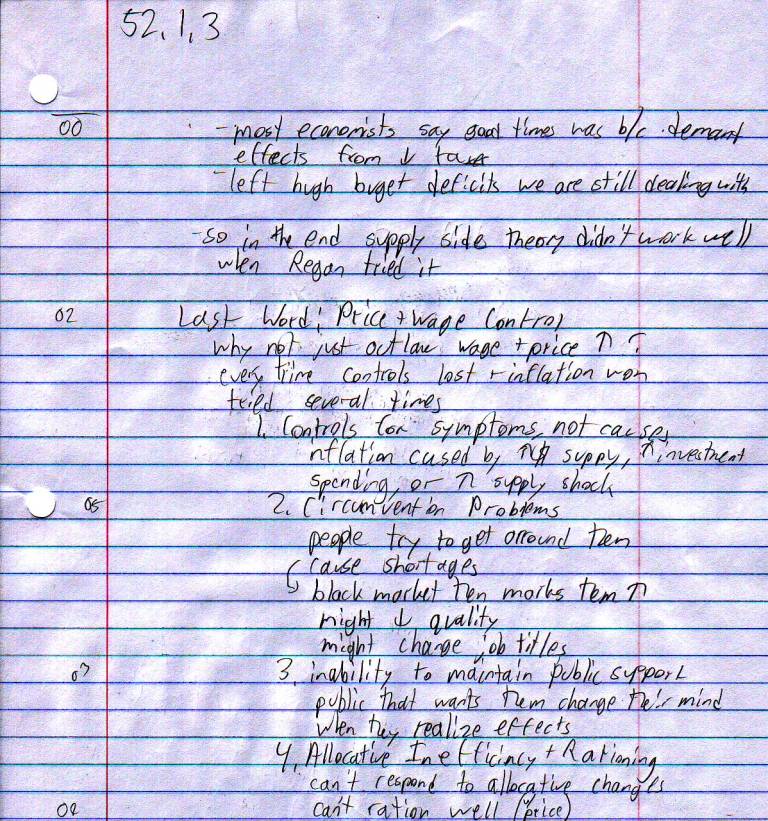 52,1,3
00 - most economists say good times was b/c demand
effects from ↓ taxes
- left hugh buget deficits we are still dealing with
- so in the end supply side theory didn't work well
when Regan tried it
02 Last Word: Price + Wage Control
why not just outlaw wage + price ↑ ?
every time controls lost + inflation won
tried several times
1. Controls for symptoms, not causes
nflation cused by ↑$ supply, ↑ investment
spending, or ↑ supply shock
05 2. Circumvention Problems
people try to get arround them
cause shortages
black market then marks tem ↑
might ↓ quality
might change job titles
07 3. inability to maintain public support
public that wants them change their mind
when they realize effects
4. Allocative Inefficincy + Rationing
can't respond to allocative changes
can't ration well (price)